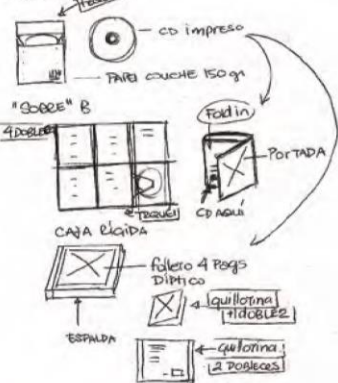 CD impreso
PAPEL COUCHE 150 gr
"SOBRE" B
4 DOBLECES
Fold in
PORTADA
TROQUEL
CD AQUÍ
CAJA RÍGIDA
folleto 4 Pags
DÍPTICO
guillotina
+1 DOBLEZ
ESPALDA
guillotina
2 DOBLECES